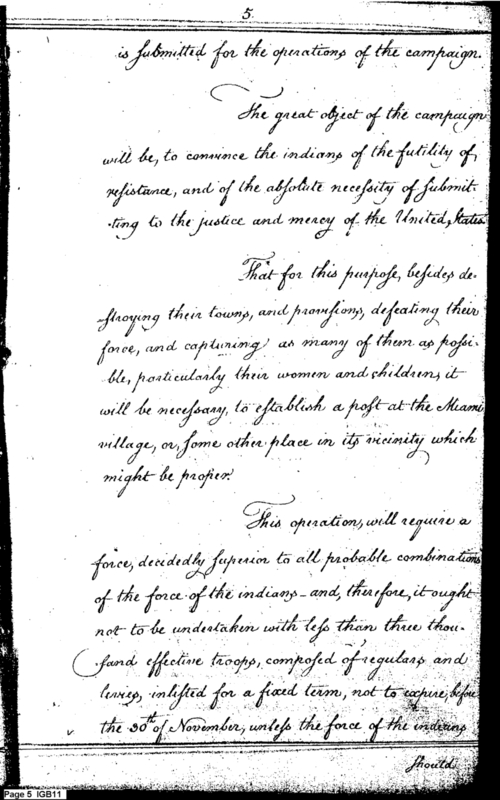 5.
is submitted for the operations of the campaign.
The great object of the campaign
will be, to convince the indians of the futility of,
resistance, and of the absolute necessity of submit-
-ting to the justice and mercy of the United States.
That for this purpose, besides de-
-stroying their towns, and provisions, defeating their
force, and capturing as many of them as possi-
ble, particularly their women and children, it
will be necessary, to establish a post at the Miami
village, or, some other place in its vicinity which
might be proper.
This operation, will require a
force, decidedly superior to all probable combinations
of the force of the indians - and, therefore, it ought
not to be undertaken with less than three thou-
sand effective troops, composed of regulars and
levies, inlisted for a fixed term, not to expire before
the 30th of November, unless the force of the indians
should
Page 5 IGB11